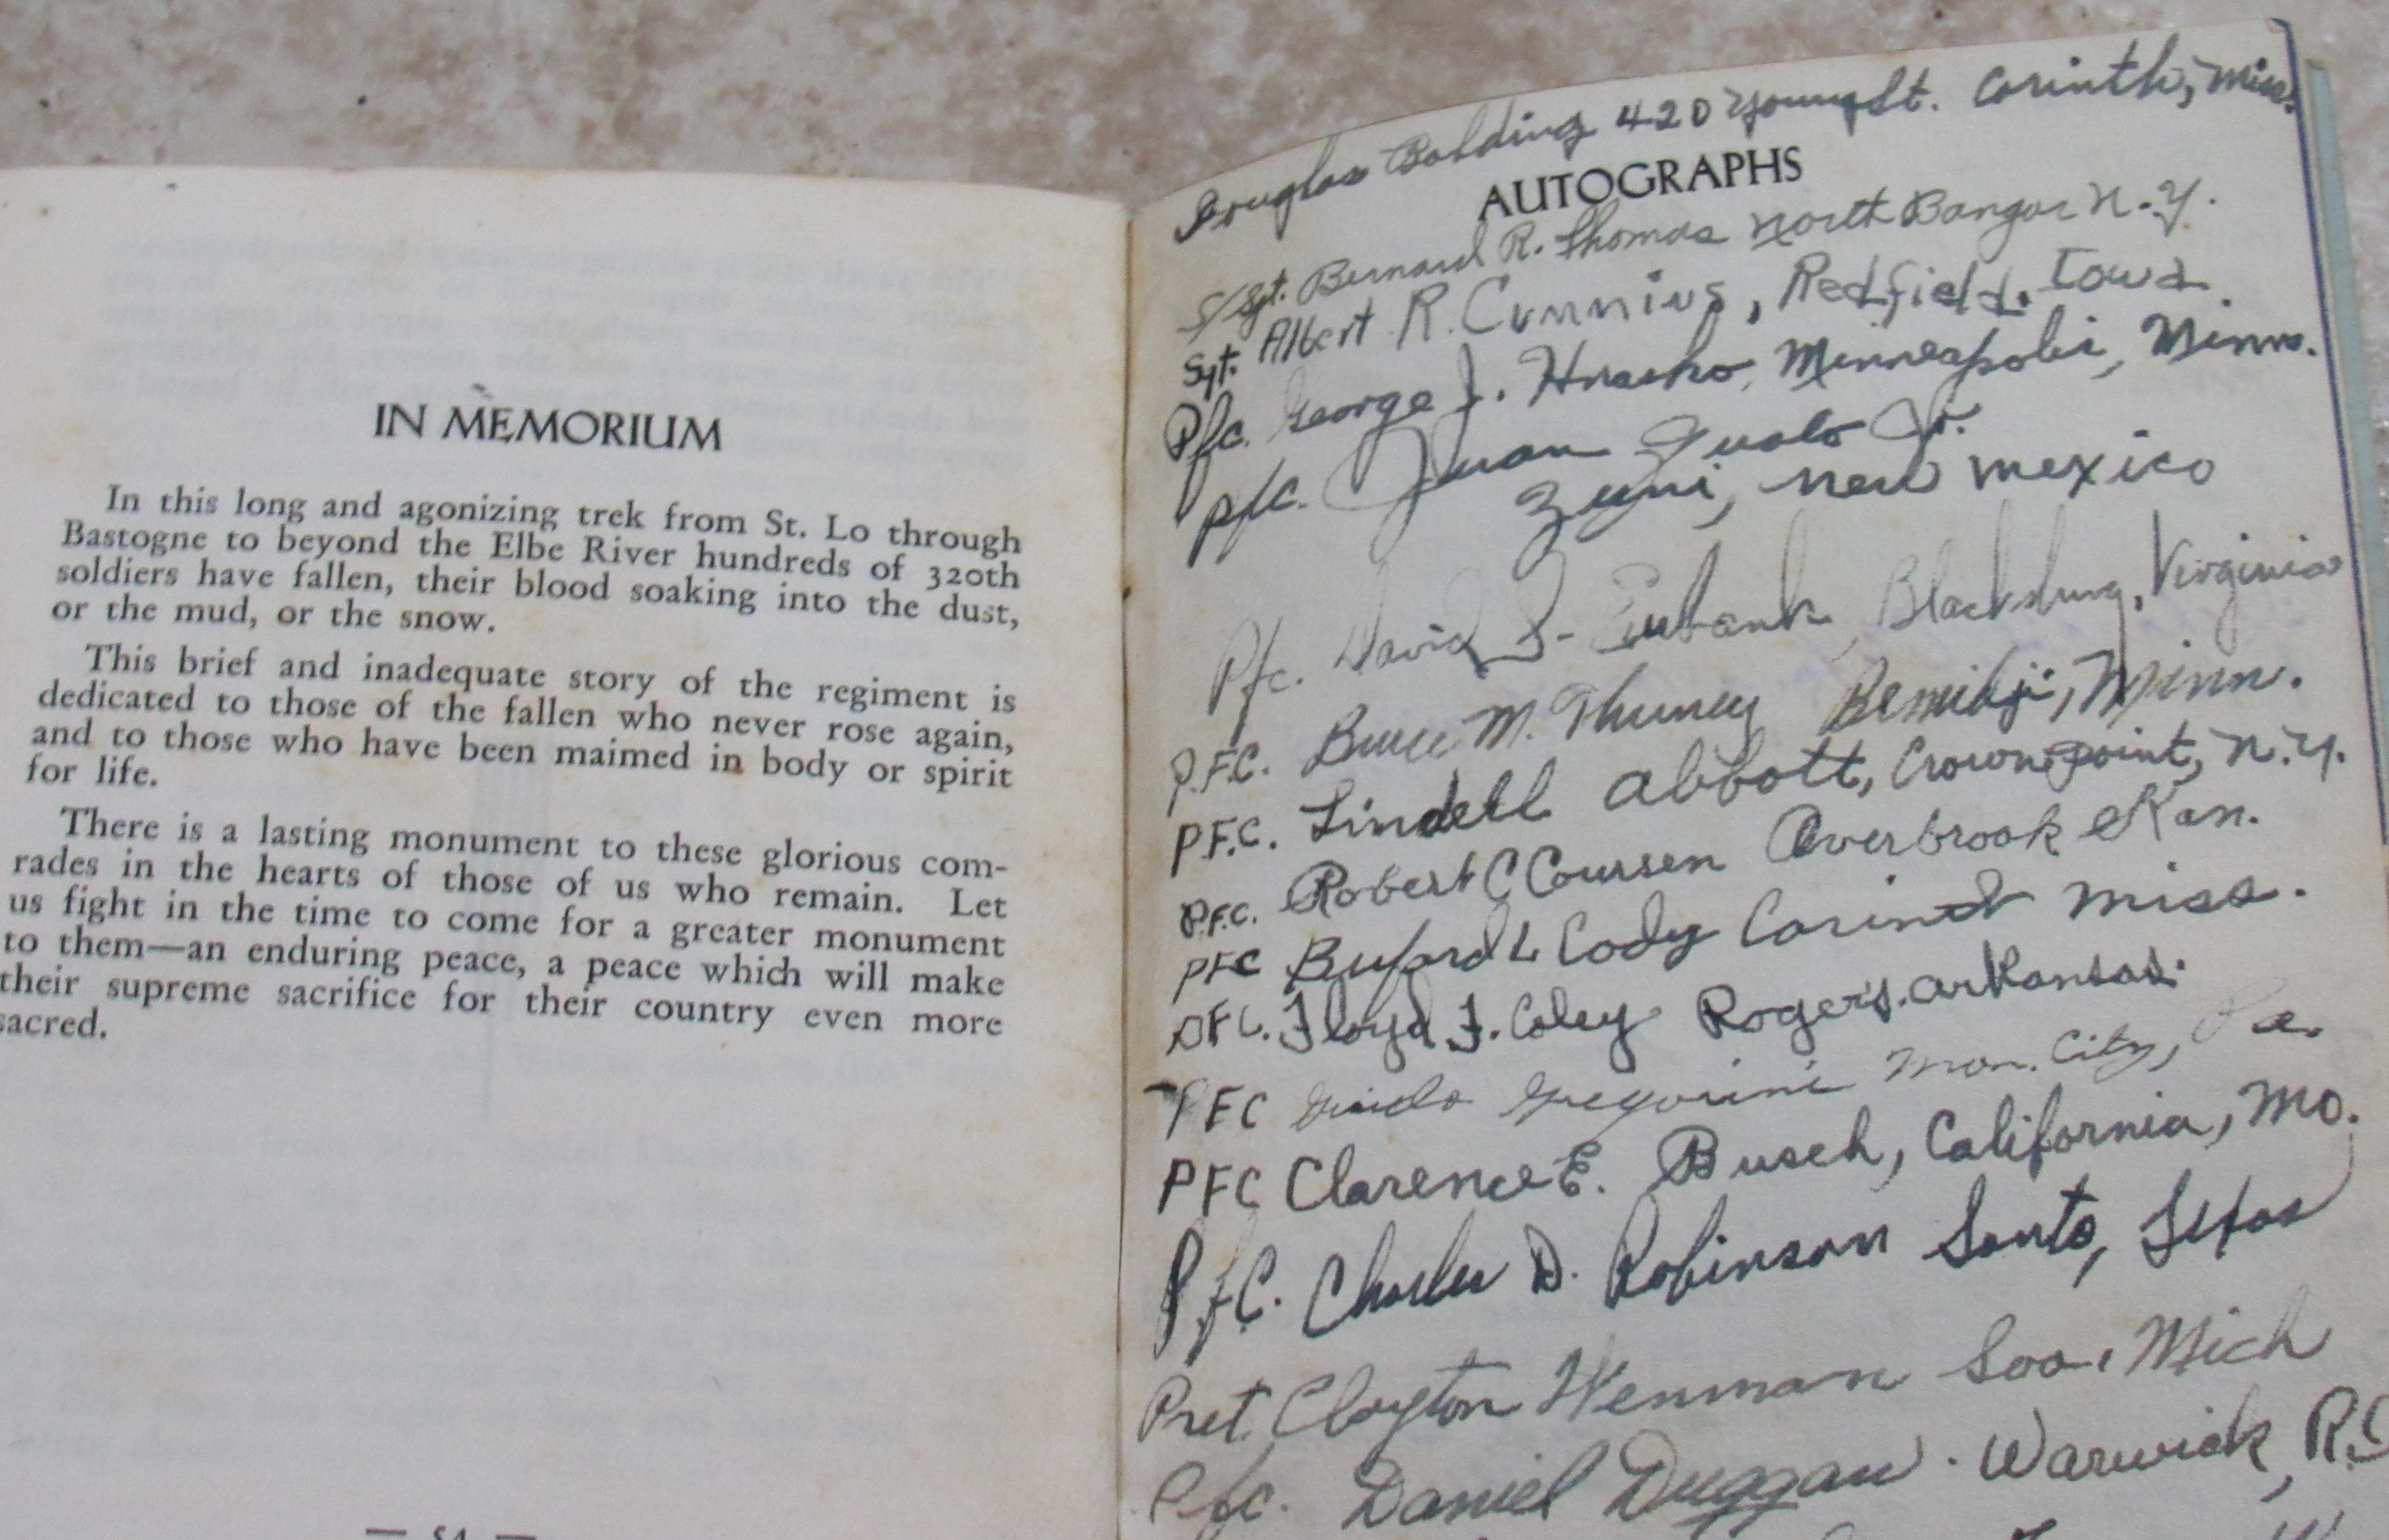 IN MEMORIUM
In this long and agonizing trek from St. Lo through
Bastogne to beyond the Elbe River hundreds of 320th
soldiers have fallen, their blood soaking into the dust,
or the mud, or the snow.
This brief and inadequate story of the regiment is
dedicated to those of the fallen who never rose again,
and to those who have been maimed in body or spirit
for life.
There is a lasting monument to these glorious com-
rades in the hearts of those of us who remain. Let
us fight in the time to come for a greater monument
to them—an enduring peace, a peace which will make
their supreme sacrifice for their country even more
sacred.
— 54 —
Douglas Bolding 420 Young St. Corinth, Miss.
AUTOGRAPHS
S/Sgt. Bernard R. Thomas North Bangor N.Y.
Sgt. Albert R. Cunnius, Redfield, Iowa
Pfc. George J. Minneapolis, Minn.
Pfc. Juan Gualo Jr.
Zuni, New Mexico
Pfc. David S. Eubank, Blacksburg, Virginia
P.F.C. Bruce M. Bemidji, Minn.
P.F.C. Lindell Abbott, Crownpoint, N.Y.
P.F.C. Robert C Coursen Overbrook Kan.
PFC Buford L Cody Corinth Miss.
PFC. Floyd F. Coley Rogers. Arkansas.
PFC Guido Gregorini Mon. City, Pa.
PFC Clarence E. Busch, California, Mo.
PFC. Charles D. Robinson Santo, Texas
Pvt. Clayton Wenman Soo, Mich
Pfc. Daniel Duggan. Warwick, R.I